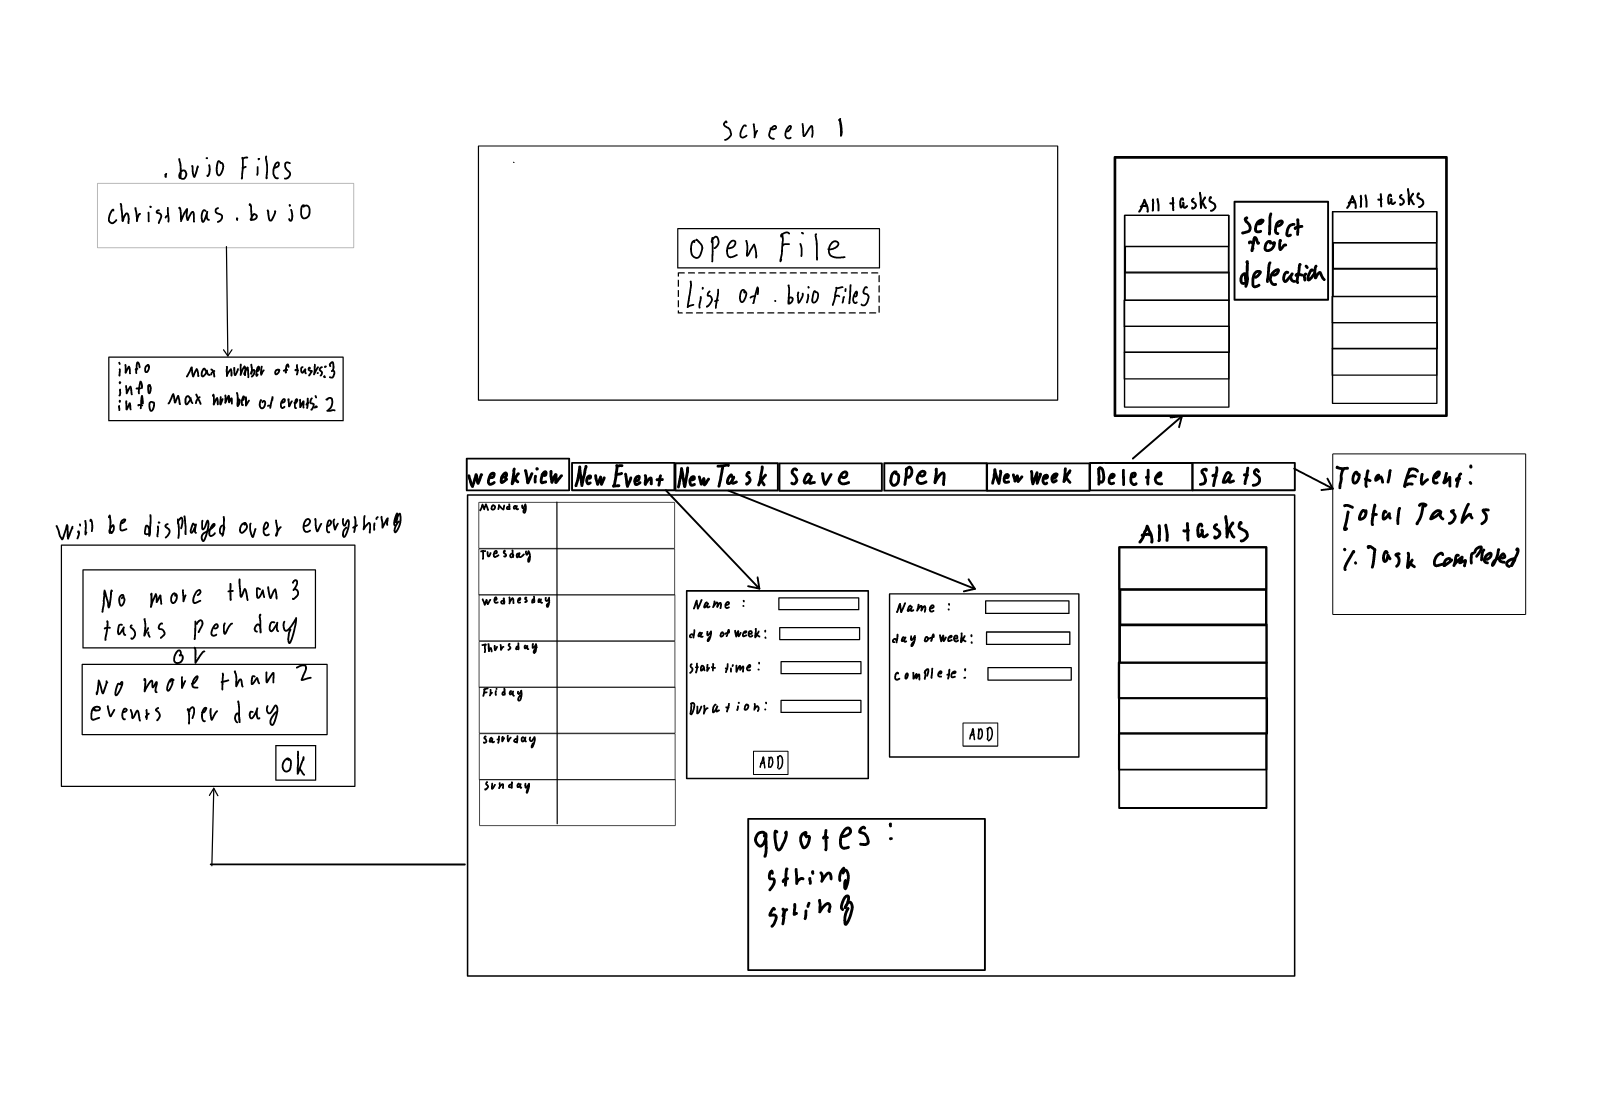 Screen 1
.bujo Files
christmas.bujo
info
info
info
max number of tasks:3
max number of events: 2
open File
List of .bujo Files
All tasks
select
for
deleation
All tasks
weekview
New Event
New Task
Save
open
New week
Delete
Stats
Total Event:
Total Tasks
% Task completed
will be displayed over everything
No more than 3
tasks per day
or
No more than 2
events per day
ok
Monday
Tuesday
wednesday
Thursday
Friday
Saturday
Sunday
Name :
day of week:
start time :
Duration:
ADD
Name :
day of week:
complete :
ADD
All tasks
quotes :
string
string